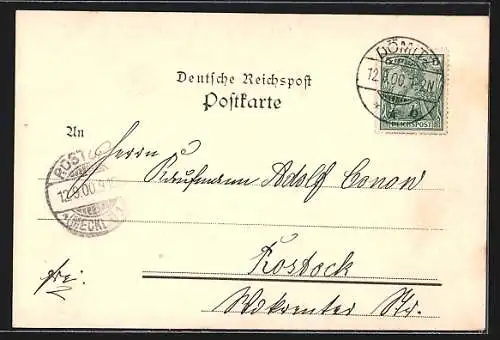 DÖMITZ
12.9.00.1-2N
* b
REICHSPOST
Deutsche Reichspost
Postkarte
An
Herrn
Kaufmann Adolf Conow
ROSTOCK
12.9.00.
(MECKL)
frei.
Rostock
Wokrenter Str.